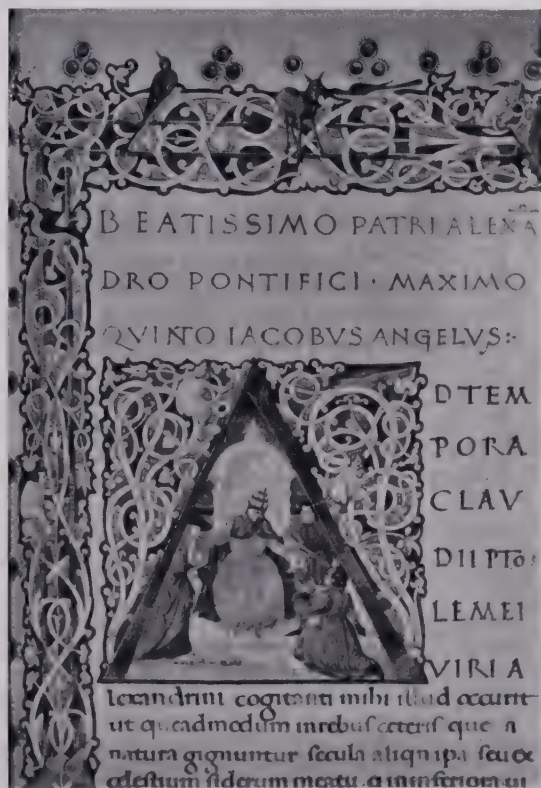 BEATISSIMO PATRI ALEXA
DRO PONTIFICI · MAXIMO
QVINTO IACOBVS ANGELVS:·
A
DTEM
PORA
CLAV
DII PTO
LEMEI
VIRI A
lexandrini cogitanti mihi illud occurit
ut queadmodum inrebus ceteris que a
natura gignuntur secula aliqn ipa seu ex
celestium siderum meatu